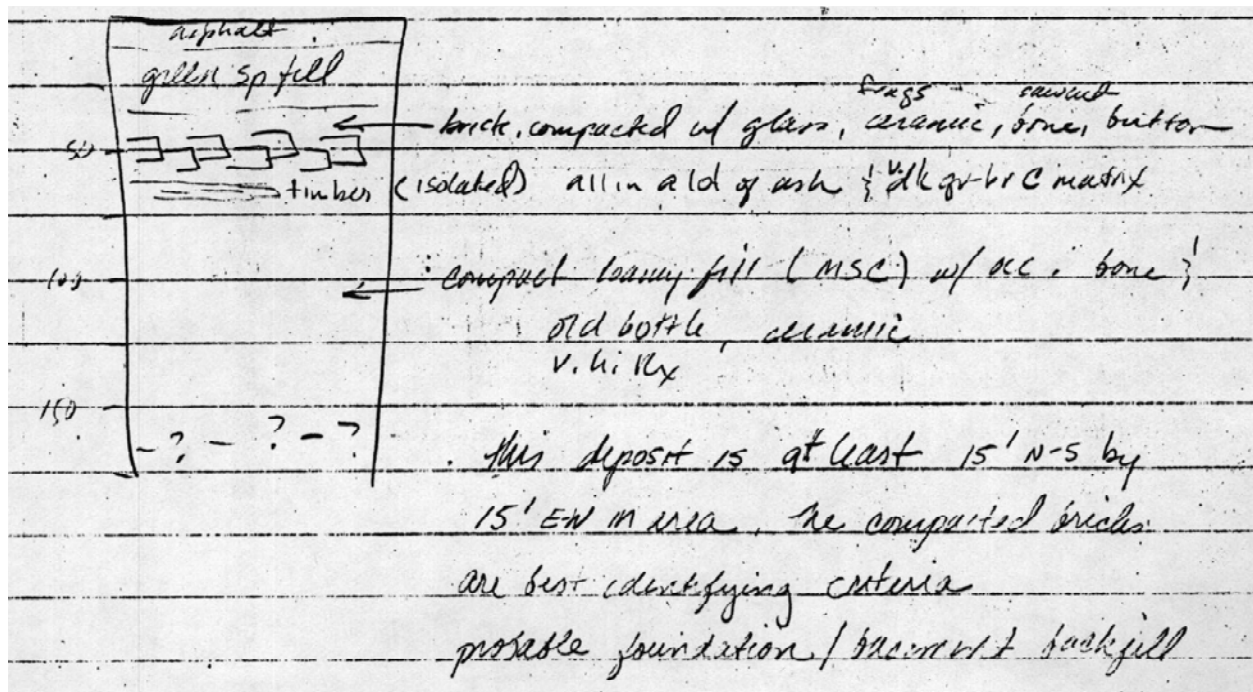 asphalt
green sp fill
frags sawcut
50 brick, compacted w/ glass, ceramic, bone, button
timber (isolated) all in a ld of ash & v. dk gr-br C matrix
100 compact loamy fill (MSC) w/ occ. bone &
old bottle, ceramic
v. h. Rx
150
- ? - ? - ?
this deposit is at least 15' N-S by
15' EW in area. The compacted bricks
are best identifying criteria
probable foundation / basement backfill